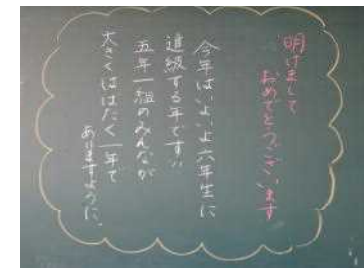 明けまして
おめでとうございます
今年はいよいよ六年生に
進級する年です!!
五年一組のみんなが
大きくはばたく一年で
ありますように。